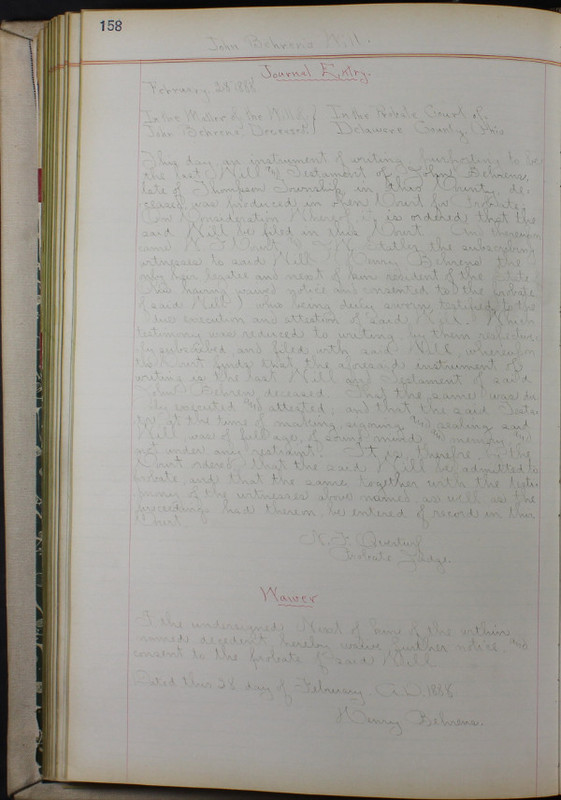 158
John Behrens Will.
Journal Entry.
February 28 1888
In the Matter of the Will of In the Probate Court of
John Behrens Deceased Delaware County, Ohio
This day, an instrument of writing purporting to be
the last Will & Testament of John Behrens,
late of Thompson Township in this County, de-
ceased was produced in open Court for Probate.
On Consideration whereof it is ordered that the
said Will be filed in this Court. And thereupon
came the subscribing
witnesses to said Will Henry Behrens the
only heir legatee and next of kin resident of the State
having notice and consented to the probate
of said Will who being duly sworn testified to the
due execution and attestation of said Will. Which
testimony was reduced to writing, by them respective-
ly subscribed, and filed with said Will, whereupon
the Court finds that the aforesaid instrument of
writing is the last Will and Testament of said
John Behrens deceased. That the same was du-
ly executed and attested, and that the said Testa-
tor at the time of making, signing and sealing said
Will, was of full age, of sound mind and memory and
not under any restraint. It is, therefore, by the
Court ordered that the said Will be admitted to
Probate, and that the same together with the testi-
mony of the witnesses above named as well as the
proceedings had thereon, be entered of record in this
Court.
Probate Judge.
Waiver
I the undersigned, Next of kin of the within
named decedent, hereby waive further notice and
consent to the probate of said Will
Dated this 28 day of February A.D. 1888
Henry Behrens.